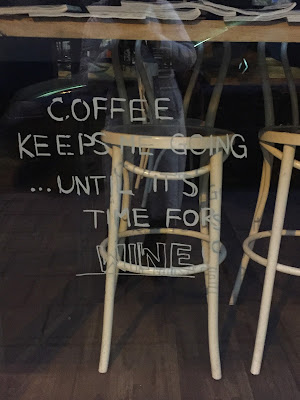 COFFEE
KEEPS ME GOING
...UNTIL IT'S
TIME FOR
WINE